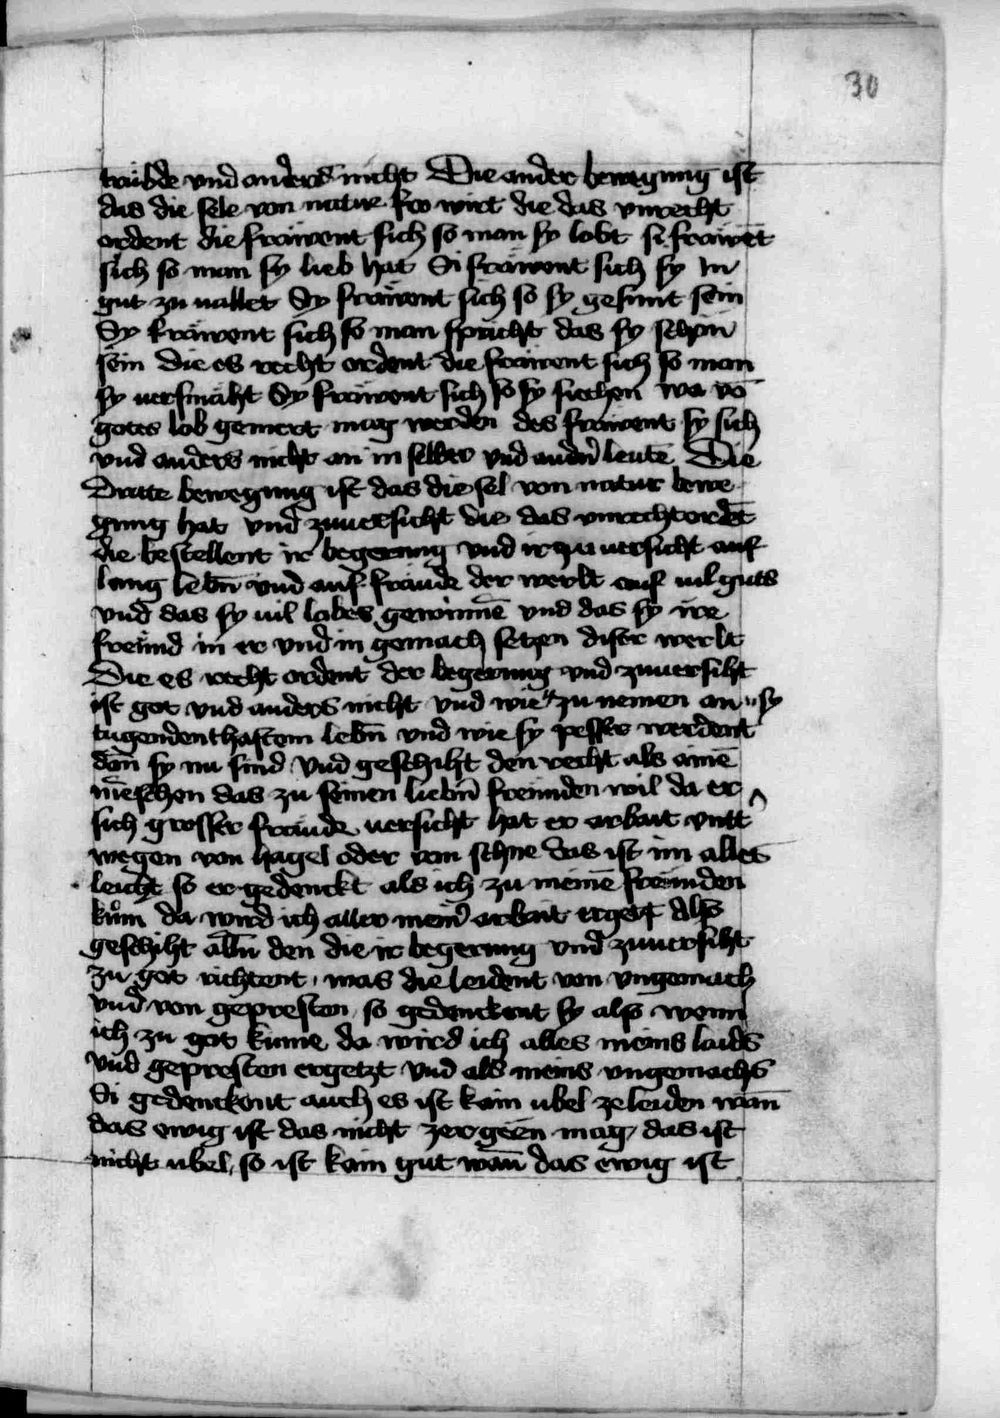 30
trübde vnd anders nicht Die ander bewegung ist
das die sele von natur fro wirt die das vnrecht
ordent die fräwent sich so man sy lobt si fräwēt
sich so man sy lieb hat Si fräwent sich sy In
gut zu uallet Sy fräwent sich so sy gesunt sein
Sy fräwent sich so man spricht das sy schön
sein die es recht ordent die fräwent sich so man
sy uersmäht Sy fräwent sich so sy siechen wa vō
gotes lob gemert mag werden des fräwent sy sich
vnd anders nicht an in selber vnd andn̄ leutē Die
Dritte bewegung ist das die sel von natur bewe
gung hat vnd zuuersicht die das vnrecht ordēt
die bestellent ir begerung vnd ir zu uersicht auf
lang lebn̄ vnd auf fräude der werlt auf uil guts
vnd das sy uil lobes gewinnē vnd das sy ire
freünd in er vnd in gemach setzen diser werlt
Die es recht ordent der begerung vnd zuuersiht
ist got vnd anders nicht vnd wie" zu nemen an " sy
tugendenthaftem lebn̄ vnd wie sy pesser werdent
dan̄ sy nu sind Vnd geschiht den recht als ainē
mēschen das zu seinen liebn̄ freünden wil da er
sich grosser fräude uersicht hat er arbait vntt
wegen von hagel oder von schne das ist im alles
leicht so er gedenckt als ich zu meinē freünden
kům da wird ich aller mein̄ arbait ergetzt Also
geschiht alln̄ den die ir begerung vnd zuuersiht
zu got richtent was die leident von vngemach
vnd von gepresten so gedenckent sy also wenn
ich zu got kume da wird ich alles meins laids
vnd gepresten ergetzt vnd als meins vngemachs
Si gedenckent auch es ist kain ubel ze leiden wān
das ewig ist das nicht zergēn mag das ist
nicht ubel so ist kain gut wān das ewig ist